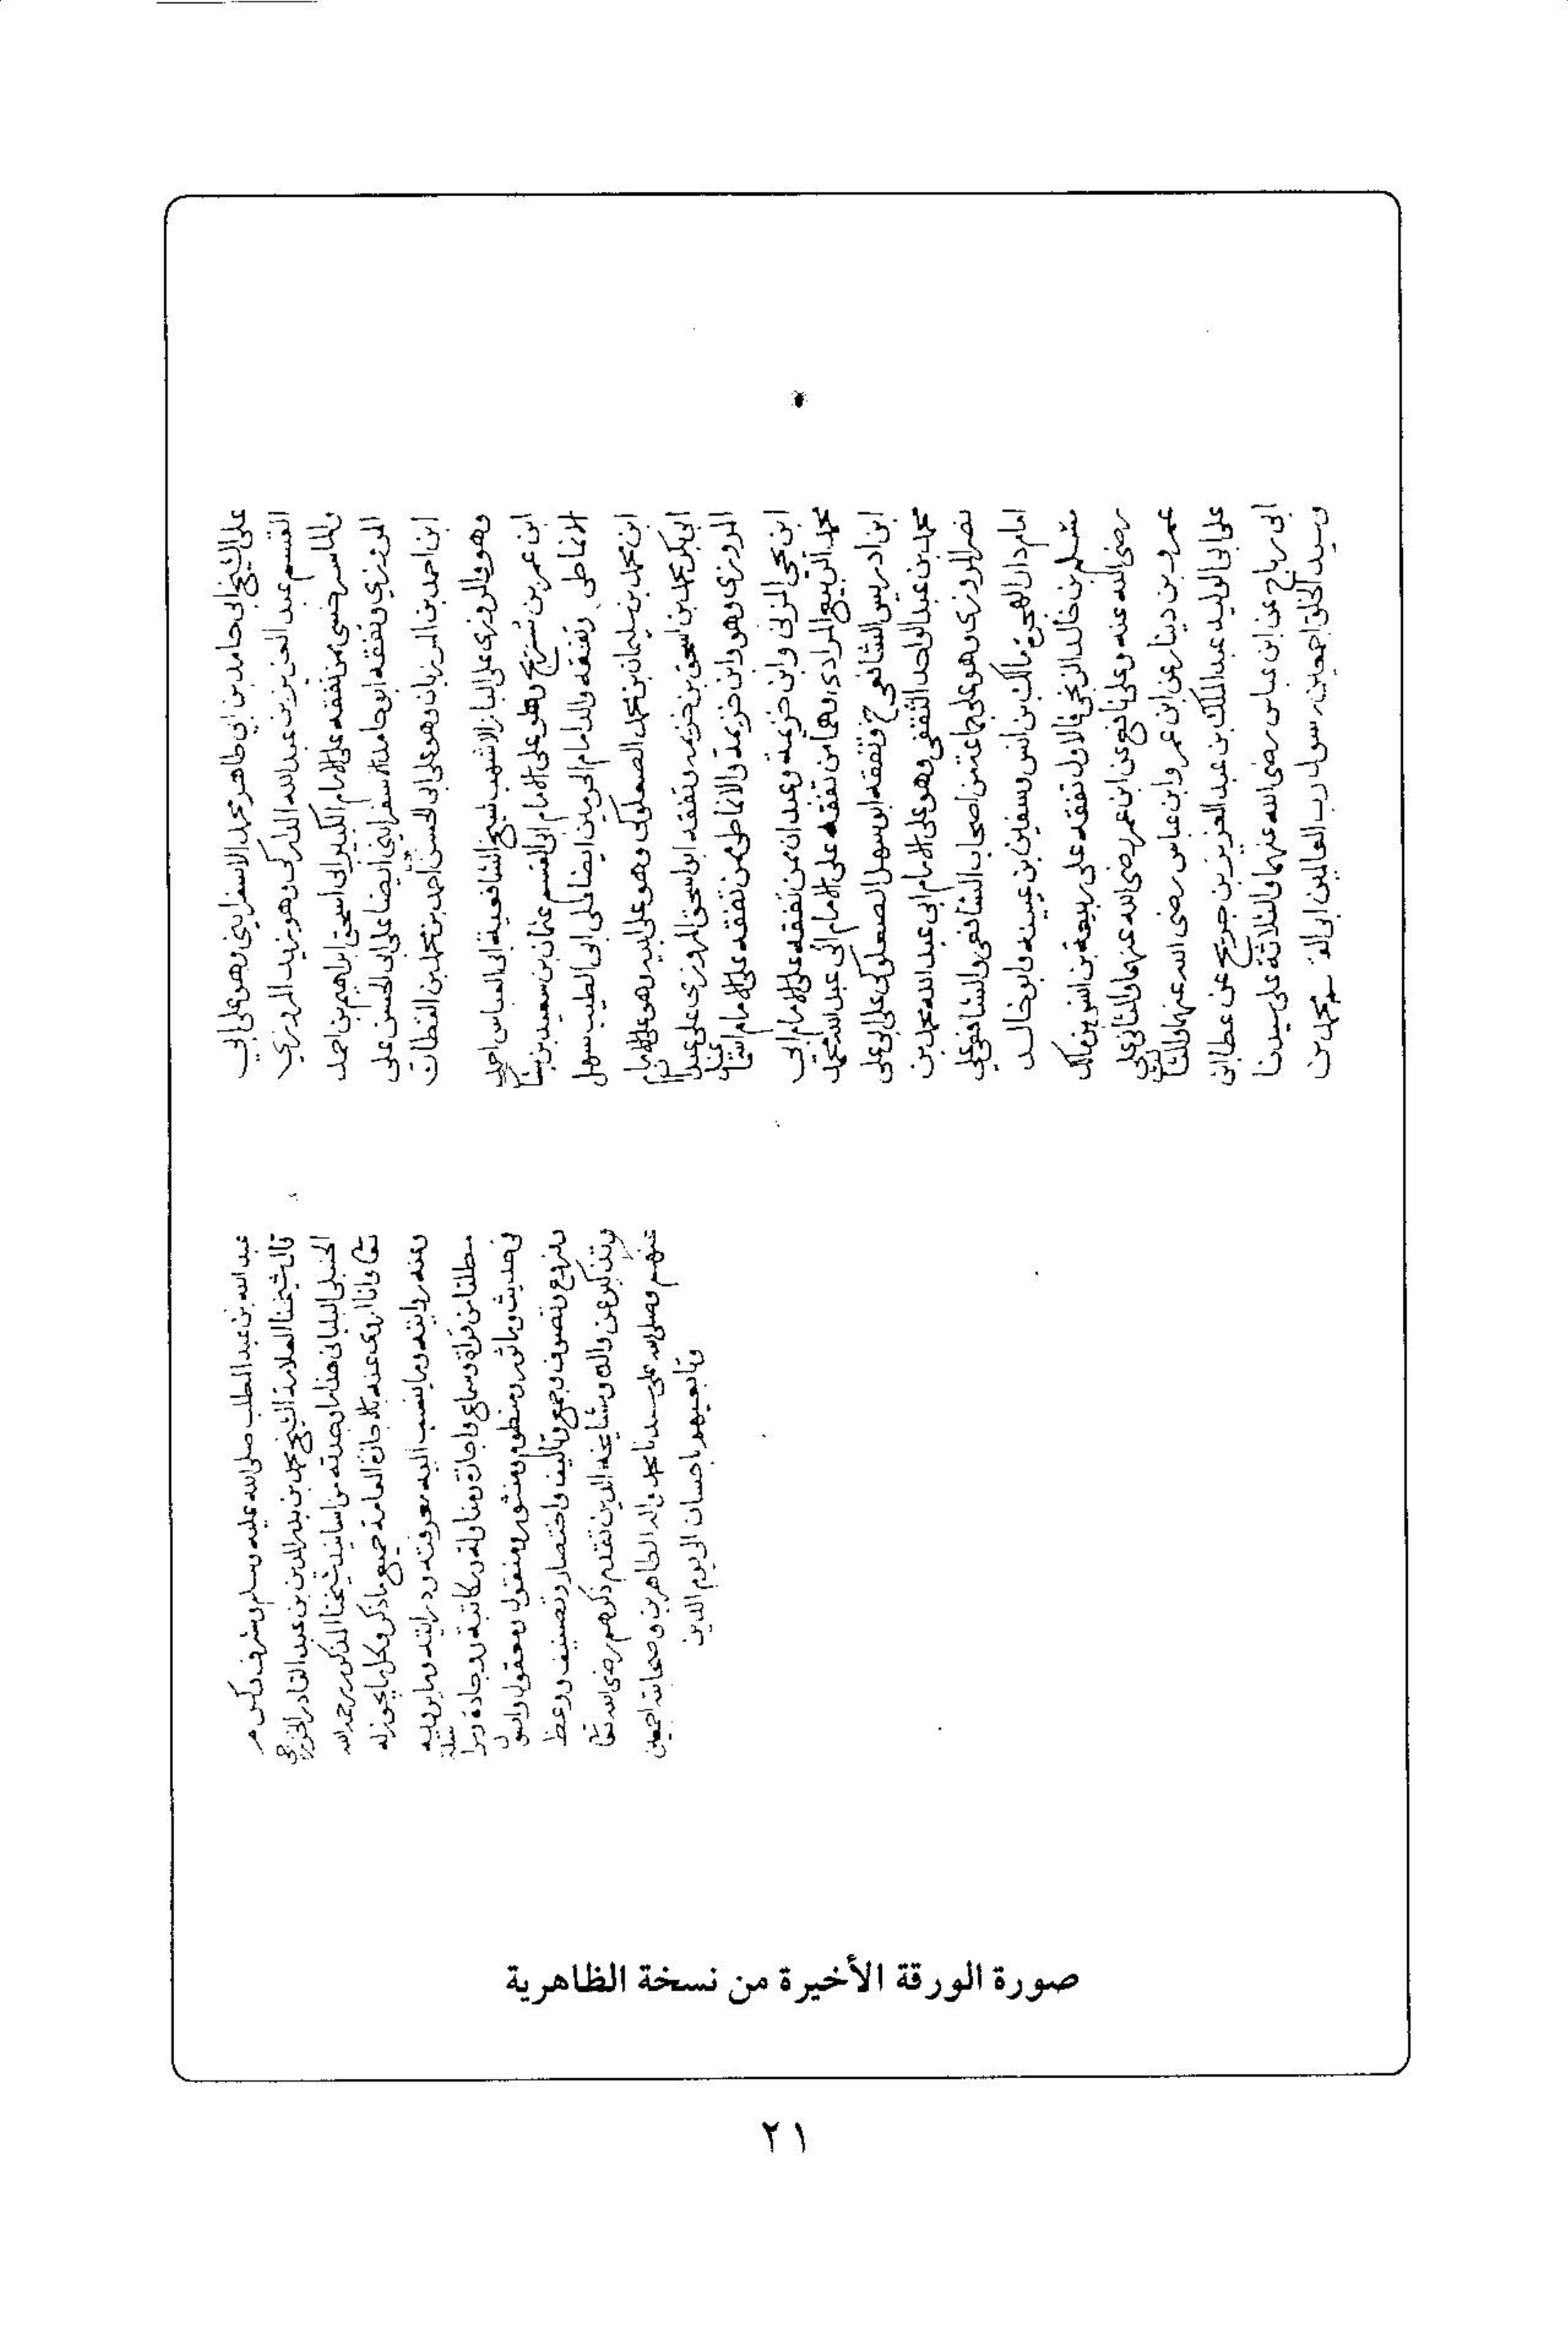 على الشيخ ابى حامد بن ابي طاهر محمد الاسفرايينى وهو على ابي
القسم عبد العزيز بن عبد الله الداركى وهو يزيد المروزي
والماسرخسى ممن تفقه على الامام الكبير ابى اسحق ابراهيم بن احمد
المروزي وتفقه ابو حامد الاسفرايينى ايضا على ابى الحسن على
ابن احمد بن المرزبان وهو على ابى الحسن احمد بن محمد بن القطان
وهو والمروزى على الباز الاشهب شيخ الشافعية ابى العباس احمد
ابن عمر بن سريج وهو على الامام ابى القسم عثمان بن سعيد بن بشار
الانماطى وتفقه والد امام الحرمين ايضا على ابى الطيب سهل
ابن محمد بن سليمان بن محمد الصعلوكى وهو على ابيه وهو على الامام
ابى بكر محمد بن اسحق بن خزيمه وتفقه ابو اسحق المروزى على عبدان
المروزى وهو وابن خزيمة والانماطى ممن تفقه على الامام
ابن يحيى المزنى وابن خزيمة وعبدان ممن تفقه على الامام ابى
محمد الربيع المرادى وهما من تفقه على الامام ابى عبد الله محمد
ابن ادريس الشافعى ح وتفقه ابو سهل الصعلوكى على ابى على
محمد بن عبد الواحد الثقفى وهو على الامام ابى عبد الله محمد بن
نصر المروزى وهو على جماعة من اصحاب الشافعى والشافعى على
امام دار الهجرة مالك بن انس وسفين بن عيينه وابو خالد
مسلم بن خالد الزنجى فالاول تفقه على ربيعة بن انس بن مالك
رضى الله عنه وعلى نافع عن ابن عمر رضى الله عنهما والثانى على
عمرو بن دينار عن ابن عمر وابن عباس رضى الله عنهم والثالث
على ابى الوليد عبد الملك بن عبد العزيز بن جريج عن عطا بن
ابى رباح عن ابن عباس رضى الله عنهما والثلاثة على سيدنا
وسيد الخلق اجمعين رسول رب العالمين ابى القسم محمد بن
عبد الله بن عبد المطلب صلى الله عليه وسلم وشرف وكرم
قال شيخنا العلامة الشيخ محمد بن بدر الدين بن عبد القادر الخزرجى
الحنبلى البلبانى هذا ما وجدته من اسانيد شيخنا المذكور رحمه الله
تعا وانا اروى عنه بالاجازة العامة جميع ما ذكر وكل ما يجوز له
وعنه روايته وما ينسب اليه معرفته ودرايته وما يرويه
مطلقا من قراة وسماع واجازة ومناولة ومكاتبة ووجادة ومراسلة
فى حديث وماثور ومنظوم ومنثور ومنقول ومعقول واصول
وفروع وتصوف وجمع وتاليف واختصار وتصنيف ووعظ
وتذكير عن والده ومشايخه الذين تقدم ذكرهم رضى الله تعا
عنهم وصلى الله على سيدنا محمد واله الطاهرين وصحابته اجمعين
وتابعيهم باحسان الى يوم الدين
صورة الورقة الأخيرة من نسخة الظاهرية
٢١